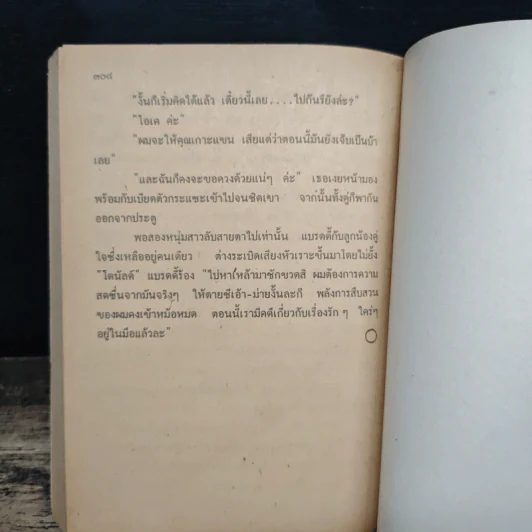 ๓๐๘
"งั้นก็เริ่มคิดได้แล้ว เดี๋ยวนี้เลย....ไปกันรึยังล่ะ?"
"โอเค ค่ะ"
"ผมจะให้คุณเกาะแขน เสียแต่ว่าตอนนี้มันยังเจ็บเป็นบ้า
เลย"
"และฉันก็คงจะขอควงด้วยแน่ๆ ค่ะ" เธอเงยหน้ามอง
พร้อมกับเบียดตัวกระแซะเข้าไปจนชิดเขา จากนั้นทั้งคู่ก็พากัน
ออกจากประตู
พอสองหนุ่มสาวลับสายตาไปเท่านั้น แบรดดี้กับลูกน้องคู่
ใจซึ่งเหลืออยู่คนเดียว ต่างระเบิดเสียงหัวเราะขึ้นมาโดยไม่ยั้ง
"โดนัลด์" แบรดดี้ร้อง "ไปหาเหล้ามาซักขวดสิ ผมต้องการความ
สดชื่นจากมันจริงๆ ให้ตายซีเอ้า-ม่ายงั้นละก็ พลังการสืบสวน
ของผมคงเข้าหม้อหมด ตอนนี้เรามีคดีเกี่ยวกับเรื่องรัก ๆ ใคร่ๆ
อยู่ในมือแล้วละ"